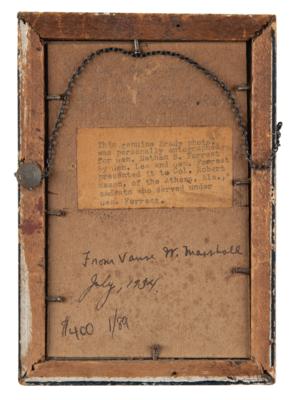 This genuine Brady photo,
was personally autographed
for Gen. Nathan B. Forrest
by Gen. Lee and Gen. Forrest
presented it to Col. Robert
Mason, of the Athens, Ala.,
cadets who served under
Gen. Forrest.
From Vause W. Marshall
July, 1934.
$400 1/89